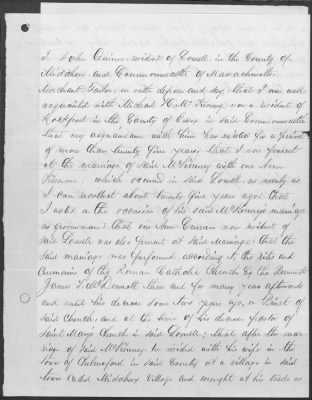 I John Quinn, resident of Lowell, in the County of
Middlesex and Commonwealth of Massachusetts
Merchant Tailor, on oath depose and say, that I am well
acquainted with Michael H. McKinney now a resident of
Rockport in the County of Essex in said Commonwealth
that my acquaintance with him has existed for a period
of more than twenty five years; that I was present
at the marriage of said McKinney with one Ann
which occured in said Lowell as nearly as
I can recollect about twenty five years ago: that
I acted on the occasion of his said McKinney's marriage
as groomsman; that one Ann Curran now resident of
said Lowell was also present at said Marriage; that the
said marriage was performed according to the rites and
Ceremonies of the Roman Catholic Church by the Reverend
James T. McDermott then and for many years afterwards
and until his decease some two years ago, a Priest of
said Church, and at the time of his decease Pastor of
Saint Mary's Church in said Lowell; that after the mar-
riage of said McKinney he resided with his wife in the
town of Chelmsford in said County at a village in said
town called Middlesex Village and wrought at his trade as